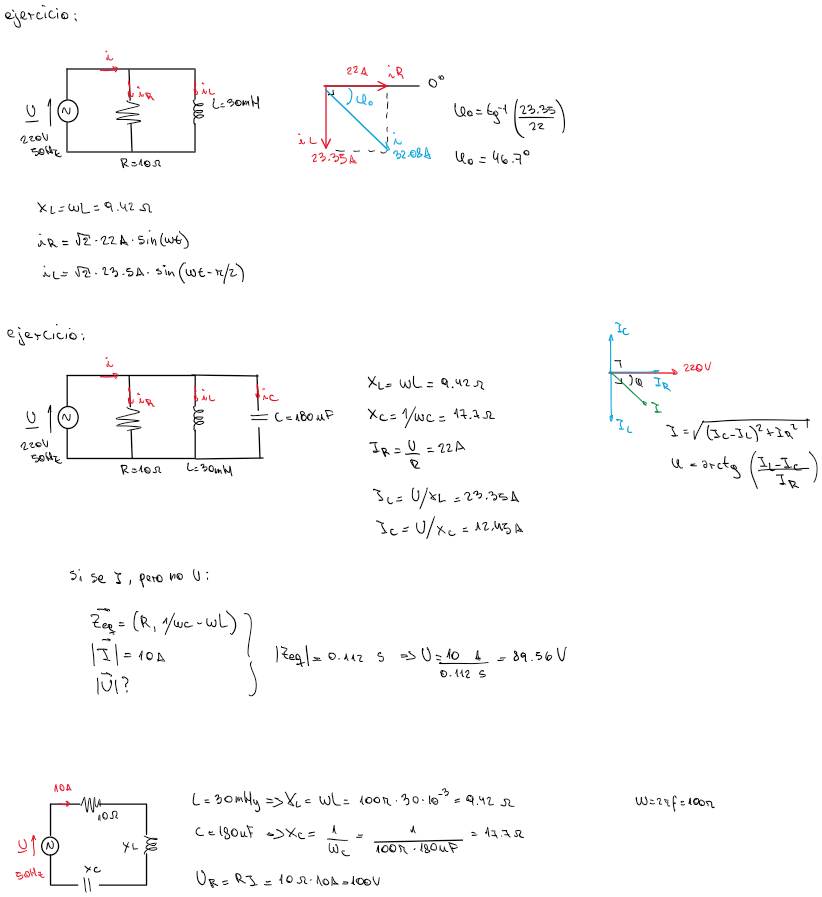 ejercicio:
i
U
220V
50Hz
iR
iL
L=30mH
R=10Ω
22A iR
0°
φ₀
iL
23.35A
i
32.08A
φ₀=tg⁻¹(23.35/22)
φ₀=46.7°
XL=ωL=9.42Ω
iR=√2·22A·sin(ωt)
iL=√2·23.5A·sin(ωt-π/2)
ejercicio:
i
U
220V
50Hz
iR
iL
iC
C=180uF
R=10Ω
L=30mH
XL=ωL=9.42Ω
XC=1/ωC=17.7Ω
IR=U/R=22A
IL=U/XL=23.35A
IC=U/XC=12.45A
IC
220V
φ
IR
I
IL
I=√((IC-IL)²+IR²)
φ=arctg(IL-IC/IR)
si se I, pero no U:
Zeq=(R, 1/ωC-ωL)
|I|=10A
|U|?
|Zeq|=0.112 S => U=10 A/0.112 S=89.56V
10A
10Ω
U
50Hz
XL
XC
L=30mHy => XL=ωL=100π·30·10⁻³=9.42Ω
C=180uF => XC=1/ωC=1/100π·180uF=17.7Ω
UR=RI=10Ω·10A=100V
ω=2πf=100π